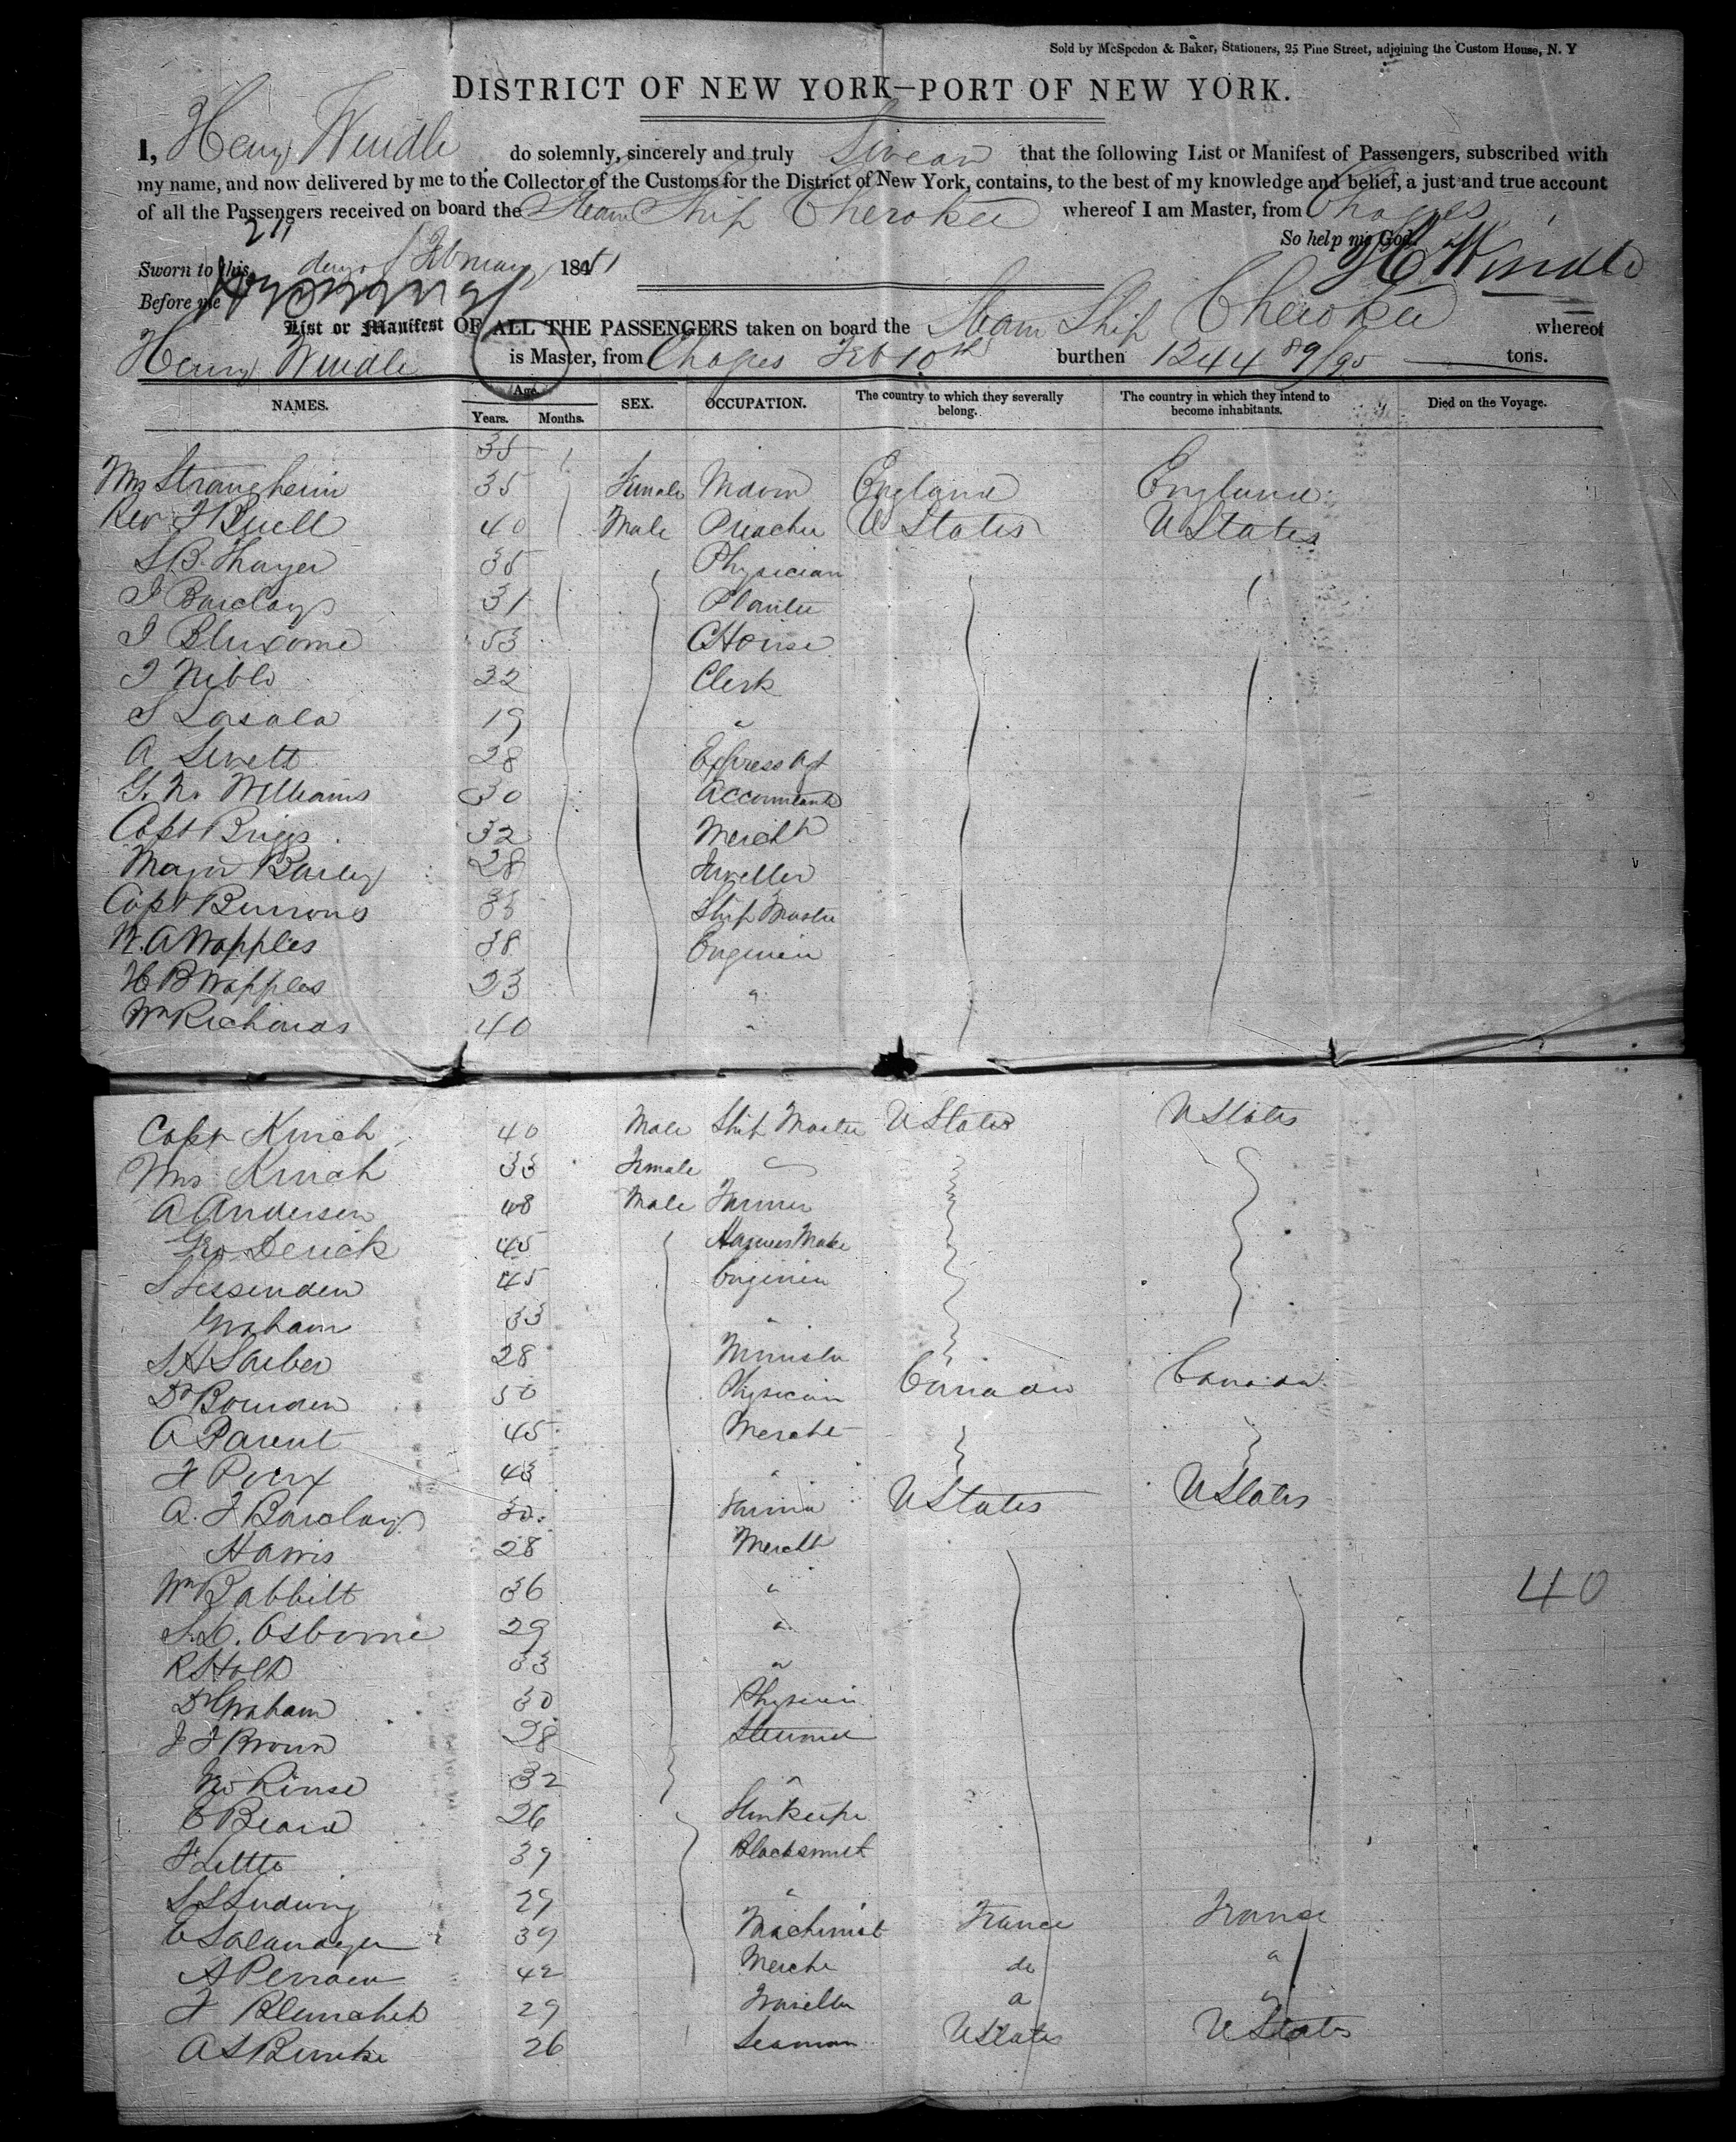 Sold by McSpedon & Baker, Stationers, 25 Pine Street, adjoining the Custom House, N. Y
DISTRICT OF NEW YORK—PORT OF NEW YORK.
I, Henry Windle do solemnly, sincerely and truly Swear that the following List or Manifest of Passengers, subscribed with
my name, and now delivered by me to the Collector of the Customs for the District of New York, contains, to the best of my knowledge and belief, a just and true account
of all the Passengers received on board the Steam Ship Cherokee whereof I am Master, from Chagres
So help me God.
H Windle
Sworn to this 21 day of February 1851
Before me
List or Manifest OF ALL THE PASSENGERS taken on board the Steam Ship Cherokee whereof
Henry Windle is Master, from Chagres Feb 10th burthen 1244 89/95 tons.
NAMES. Age. Years. Months. SEX. OCCUPATION. The country to which they severally belong. The country in which they intend to become inhabitants. Died on the Voyage.
35
Mrs Strangheim 35 Female England England
Rev F Buell 40 Male Preacher U States U States
S. B. Thayer 35 Physician
J Barclay 31 Planter
J Bluxome 53 C House
J Niblo 22 Clerk
S Lasala 19 "
A 28 Express Agt
G. N. Williams 30 Accountant
Capt Briggs 32 Mercht
Major Bailey 28 Jeweller
Capt Burrows 35 Ship Master
W. A Wapples 38 Engineer
H B Wapples 23 "
Wm Richards 40 "
Capt Kinch 40 Male Ship Master U States U States
Mrs Kinch 33 Female
A Andersen 48 Male Farmer
Geo Derick 45 Harness Make
S Fessenden 45 Engineer
Graham 33 "
S H 28 Minister
Dr 50 Physician Canada Canada
A Parent 45 Mercht
F 43 "
A. F Barclay 30 Farmer U States U States
Harris 28 Mercht
Wm Babbitt 36 " 40
S. D. Osborne 29 "
R Holt 33 "
Dr Graham 30 Physician
J F Brown 28
32 "
E Beard 26
F Little 39 Blacksmith
S S Ludwig 29 "
39 Machinist France France
A 42 Mercht do "
F Blanchet 29 Traveller " "
A S Burke 26 Seaman U States U States